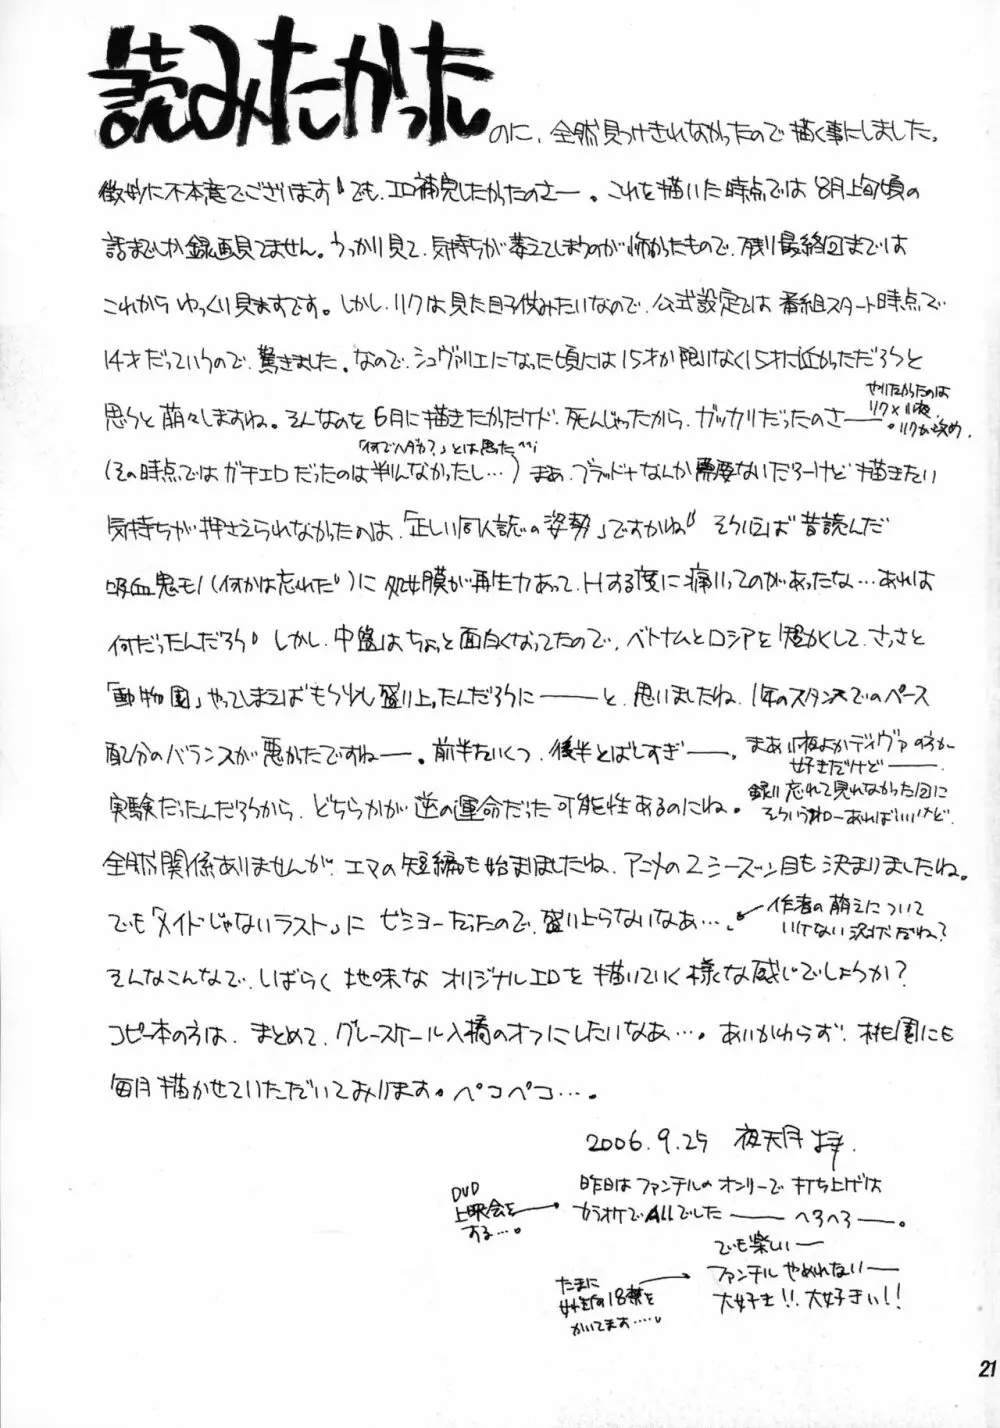 読みたかった
のに、全然見つけきれなかったので描く事にしました。
微妙に不本意でございます でも、エロ補完したかたのさー。これを描いた時点では'8月上旬頃の
話までしか録画見てません。うっかり見て、気持ちが萎えてしまうのが怖かたもので、残り最終回までは
これからゆっくり見ますです。しかし、リクは見た目子供みたいなので、公式設定では番組スタート時点で
14才だっていうので、驚きました。なので、シュヴァリエになった頃には15才か限りなく15才に近かっただろうと
やりたかったのは
リク×小夜
。リクが攻め。
思うと萌々しますね。そんなのを6月に描きたかたけど、死んじゃったから、ガッカリだったのさー
「何でハダカ?」とは思た^^;
(その時点ではガチエロだったのは判んなかったし…)まぁ、ブラッド+なんか需要ないだろーけど描きたい
気持ちが押さえられなかたのは、「正しい同人誌の姿勢」ですかね そういえば昔読んだ
吸血鬼モノ(何かは忘れた)に処女膜が再生力あって、Hする度に痛いってのがあったな…あれは
何だったんだろう しかし、中盤はちょっと面白くなってたので、ベトナムとロシアを短かくして、さっさと
「動物園」やってしまえばもう少し盛り上ったんだろうに――と、思いましたね、1年のスタンスでのペース
配分のバランスが悪かたですねー。前半たいくつ、後半とばしすぎー。
まあ小夜よかディヴァの方が
好きだけどー
実験だったんだろうから、どちらかが逆の運命だった可能性あるのにね。
録り忘れて見れなかった回に
そういうネローあればいいけど。
全然関係ありませんが、エマの短編も始まりましたね、アニメの2シーズン目も決まりましたね。
でも「メイドじゃないラスト」にビミョーだったので、盛り上らないなぁ…。
作者の萌えについて
いけない状況だね?
そんなこんなで、しばらく地味なオリジナルエロを描いていく様な感じでしょうか?
コピー本の方は、まとめて、グレースケール入稿のオフにしたいなぁ…。あいかわらず、桃園にも
毎月描かせていただいております。ペコペコ…。
2006.9.25 夜天月 拝.
DVD
上映会を
する…。
昨日はファンテルのオンリーで打ち上げは
カラオケでAllでした――へろへろー。
でも楽しいー
ファンテルやめれないー
大好き!!大好きぃ!!
たまに
女性向の18禁を
かいてます……。
21